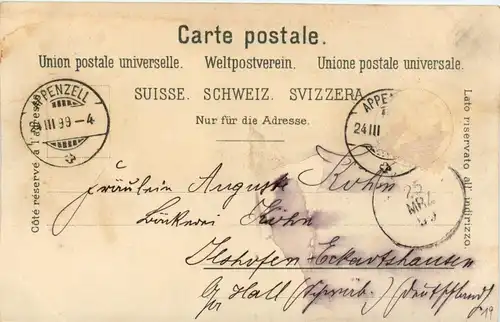 Carte postale.
Union postale universelle. Weltpostverein. Unione postale universale.
SUISSE. SCHWEIZ. SVIZZERA
Nur für die Adresse.
Côté réservé à l'adresse.
Lato riservato all' indirizzo.
APPENZELL
24 III 99 - 4
APPEN
24 III
25
MRZ
Fräulein Auguste Kohn
Bäckerei Köhn
Ilshofen-Eckartshausen
Hall (Schwäb.) (Deutschland)